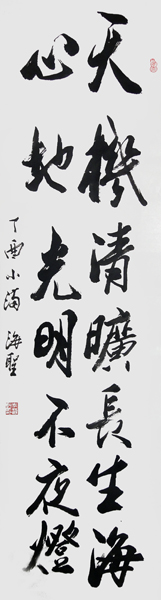 天機清曠長生海
心地光明不夜燈
丁酉小滿 海聖